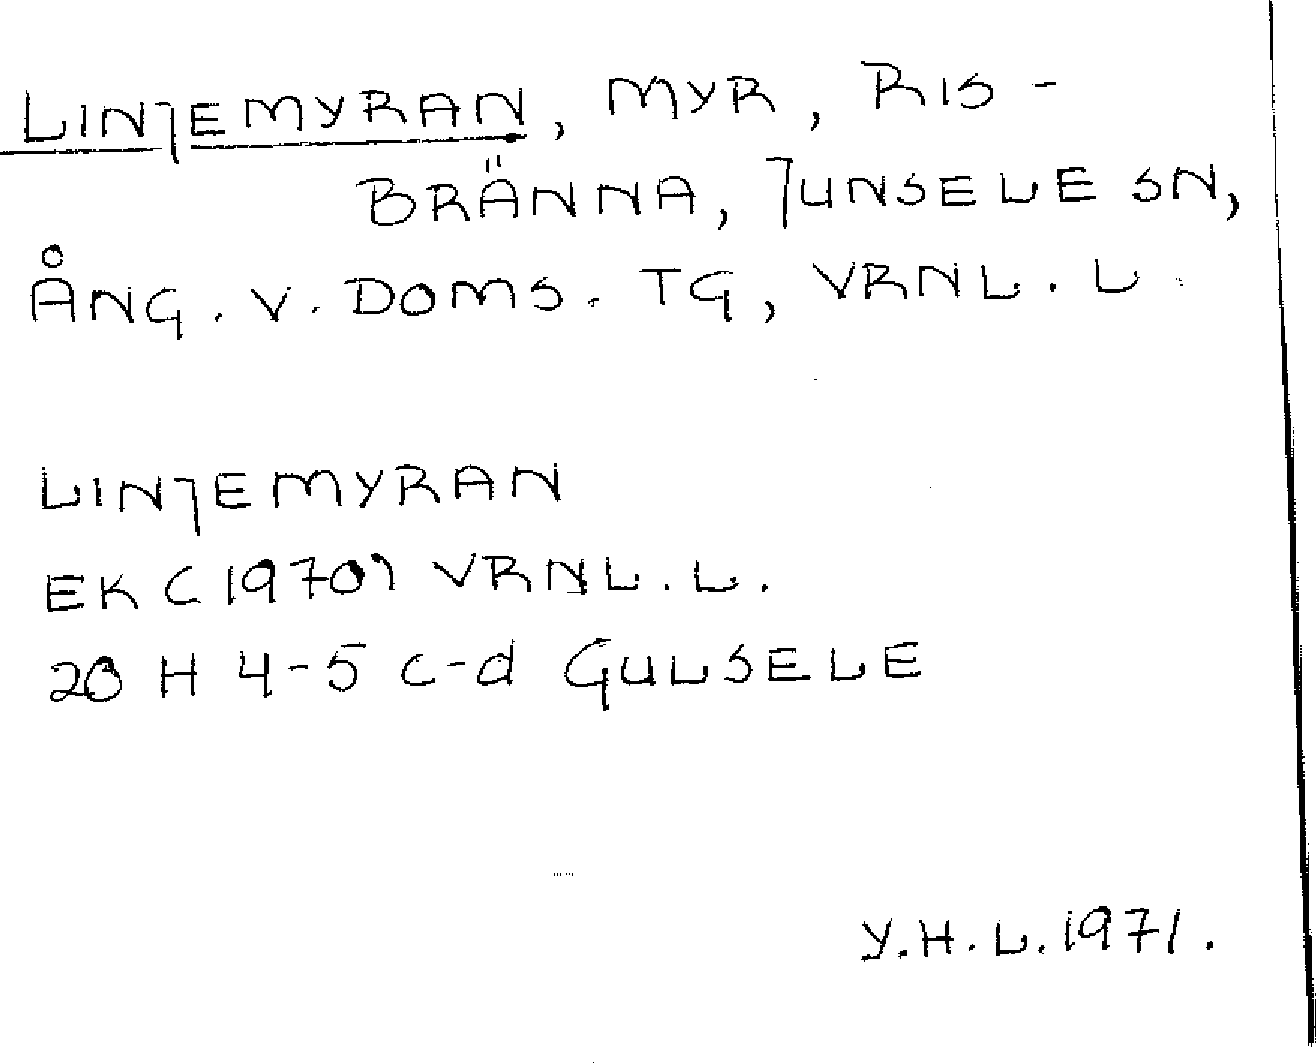 LINJEMYRAN, MYR, RIS-
BRÄNNA, JUNSELE SN,
ÅNG. V. DOMS. TG, VRNL. L.
LINJEMYRAN
EK (1970) VRNL. L.
20 H 4-5 c-d GULSELE
Y.H.L. 1971.